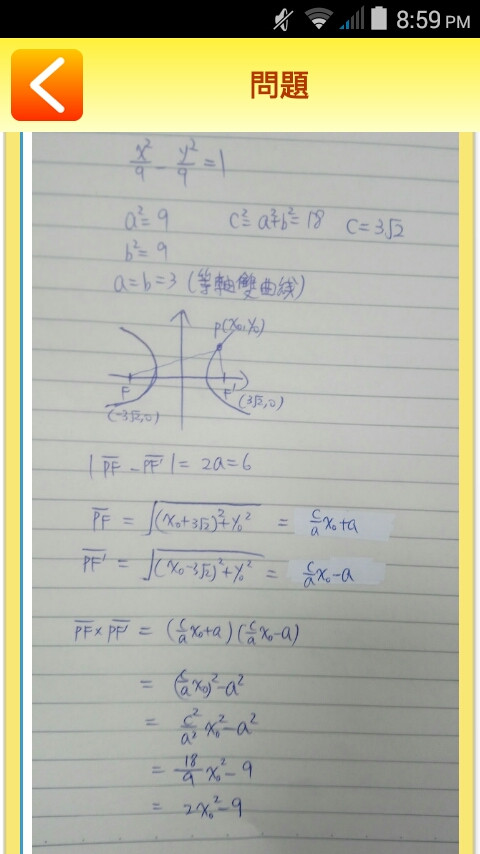 8:59 PM
問題
x²/9 - y²/9 = 1
a² = 9 c² = a²+b² = 18 c = 3√2
b² = 9
a = b = 3 (等軸雙曲線)
P(x₀, y₀)
F F'
(-3√2, 0) (3√2, 0)
| PF - PF' | = 2a = 6
PF = √(x₀+3√2)²+y₀² = c/a x₀+a
PF' = √(x₀-3√2)²+y₀² = c/a x₀-a
PF × PF' = (c/a x₀+a)(c/a x₀-a)
= (c/a x₀)²-a²
= c²/a² x₀²-a²
= 18/9 x₀²-9
= 2x₀²-9